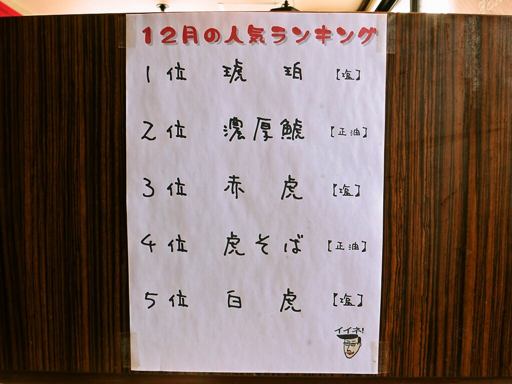 12月の人気ランキング
1位 琥珀 【塩】
2位 濃厚鯱 【正油】
3位 赤虎 【塩】
4位 虎そば 【正油】
5位 白虎 【塩】
イイネ!